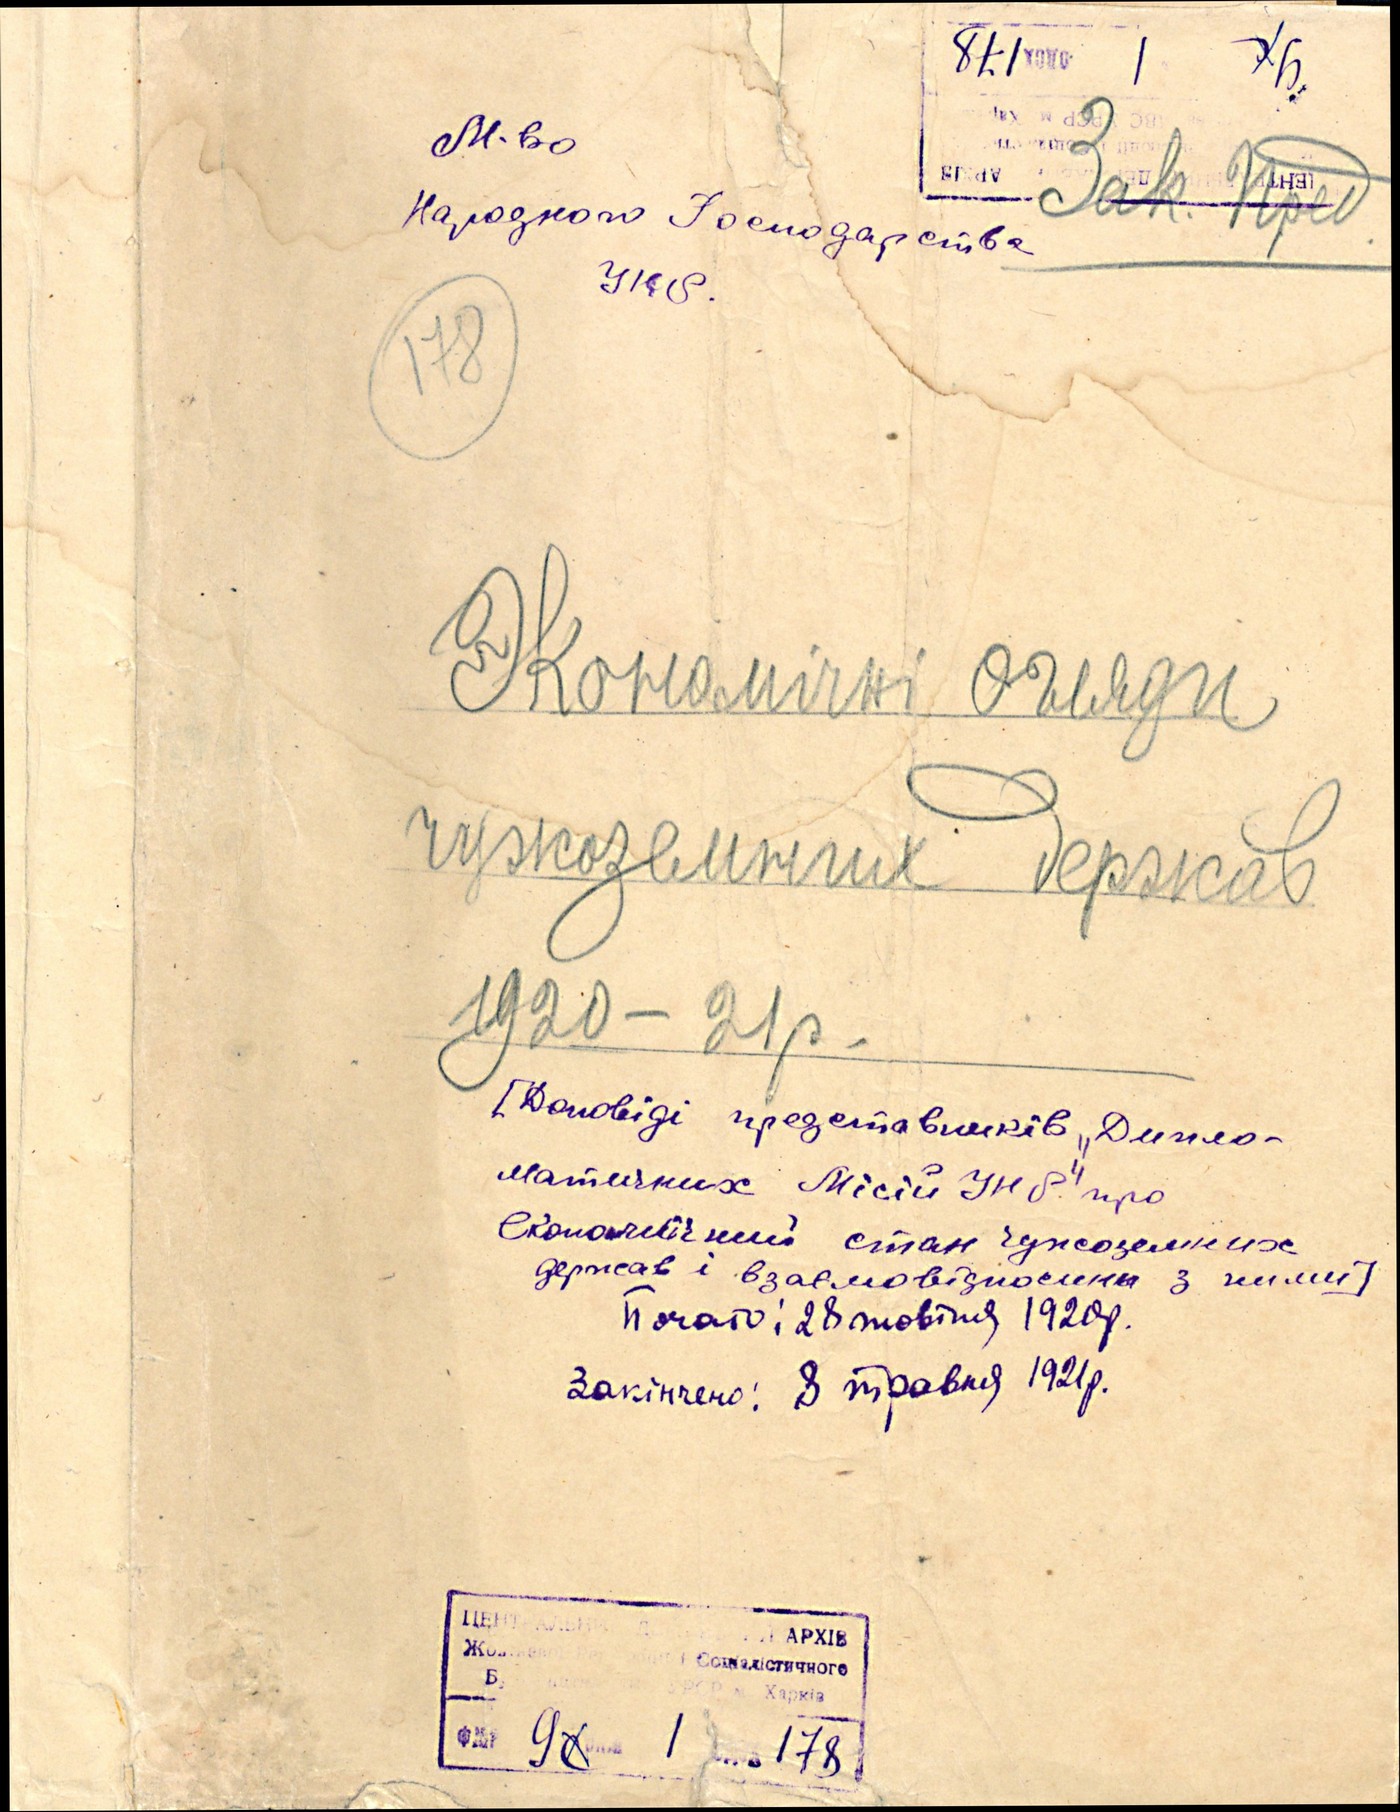 178
1
Зак. Пред.
М-во
Народного Господарства
УНР.
178
Економічні огляди
чужоземних держав
1920-21р.
[Доповіді представників „Дипло-
матичних Місій УНР" про
Економічний стан чужоземних
держав і взаємовідносини з ними]
Почато: 28 жовтня 1920р.
Закінчено: 8 травня 1921р.
ЦЕНТРАЛЬНИЙ АРХІВ
Соціалістичного
УРСР м. Харків
1 178